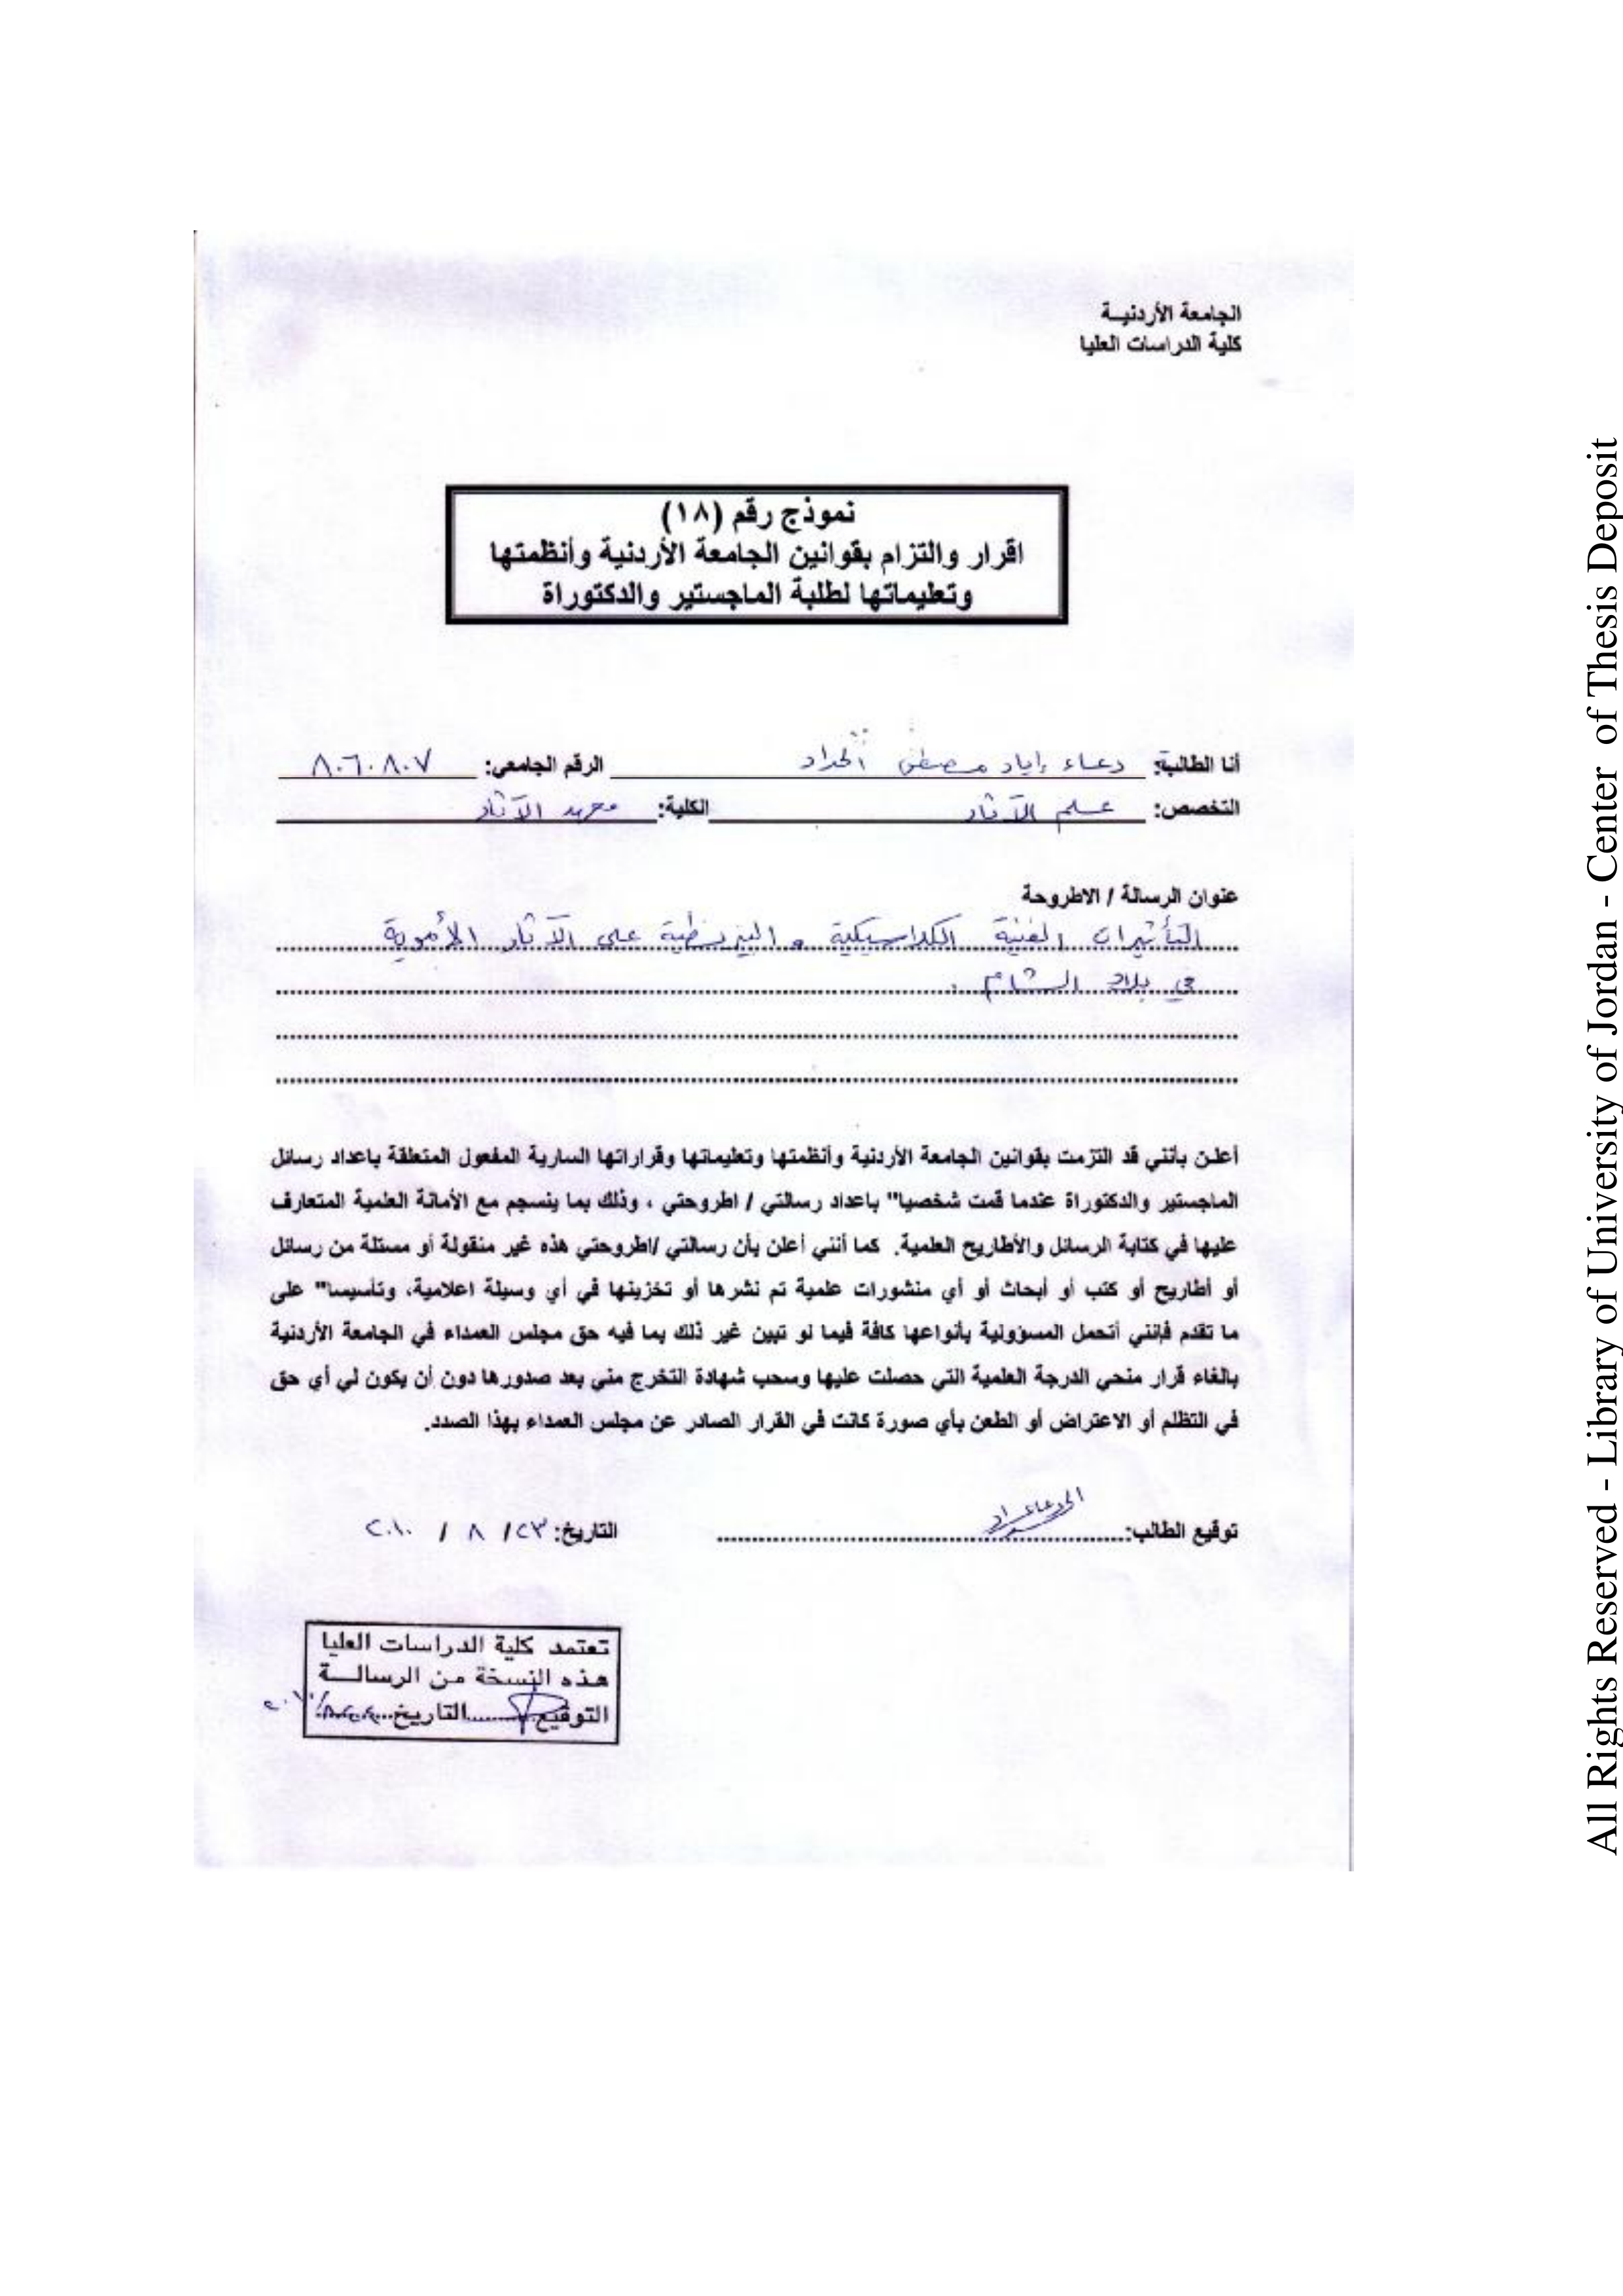 الجامعة الأردنيـة
كلية الدراسات العليا
نموذج رقم (١٨)
اقرار والتزام بقوانين الجامعة الأردنية وأنظمتها
وتعليماتها لطلبة الماجستير والدكتوراة
أنا الطالبة: دعاء إياد مصطفى الحداد الرقم الجامعي: ٨٠٦٠٨٠٧
التخصص: علم الآثار الكلية: معهد الآثار
عنوان الرسالة / الاطروحة
التأثيرات الفنية الكلاسيكية و البيزنطية على الآثار الأموية
في بلاد الشام .
أعلن بأنني قد التزمت بقوانين الجامعة الأردنية وأنظمتها وتعليماتها وقراراتها السارية المفعول المتعلقة باعداد رسائل
الماجستير والدكتوراة عندما قمت شخصيا" باعداد رسالتي / اطروحتي ، وذلك بما ينسجم مع الأمانة العلمية المتعارف
عليها في كتابة الرسائل والأطاريح العلمية. كما أنني أعلن بأن رسالتي /اطروحتي هذه غير منقولة أو مستلة من رسائل
أو أطاريح أو كتب أو أبحاث أو أي منشورات علمية تم نشرها أو تخزينها في أي وسيلة اعلامية، وتأسيسا" على
ما تقدم فإنني أتحمل المسؤولية بأنواعها كافة فيما لو تبين غير ذلك بما فيه حق مجلس العمداء في الجامعة الأردنية
بالغاء قرار منحي الدرجة العلمية التي حصلت عليها وسحب شهادة التخرج مني بعد صدورها دون أن يكون لي أي حق
في التظلم أو الاعتراض أو الطعن بأي صورة كانت في القرار الصادر عن مجلس العمداء بهذا الصدد.
توقيع الطالب: التاريخ: ٢٣/ ٨ / ٢٠١٠
تعتمد كلية الدراسات العليا
هذه النسخة من الرسالـــة
التوقيع التاريخ
All Rights Reserved - Library of University of Jordan - Center of Thesis Deposit